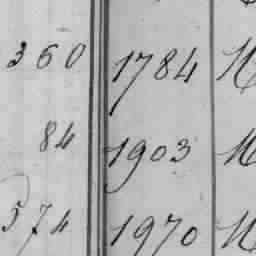 360 1784
84 1903
574 1970